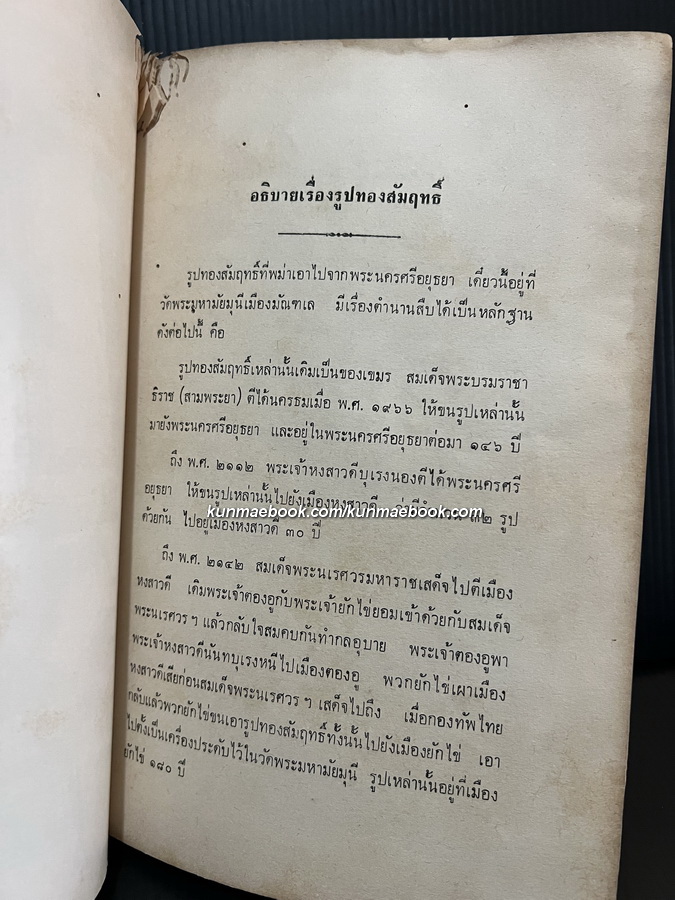 อธิบายเรื่องรูปทองสัมฤทธิ์
รูปทองสัมฤทธิ์ที่พม่าเอาไปจากพระนครศรีอยุธยา เดี๋ยวนี้อยู่ที่
วัดพระมหามัยมุนีเมืองมัณฑเล มีเรื่องตำนานสืบได้เป็นหลักฐาน
ดังต่อไปนี้ คือ
รูปทองสัมฤทธิ์เหล่านั้นเดิมเป็นของเขมร สมเด็จพระบรมราชา
ธิราช (สามพระยา) ตีได้นครธมเมื่อ พ.ศ. ๑๙๖๖ ให้ขนรูปเหล่านั้น
มายังพระนครศรีอยุธยา และอยู่ในพระนครศรีอยุธยาต่อมา ๑๔๖ ปี
ถึง พ.ศ. ๒๑๑๒ พระเจ้าหงสาวดีบุเรงนองตีได้พระนครศรี
อยุธยา ให้ขนรูปเหล่านั้นไปยังเมืองหงสาวดี ๓๒ รูป
kunmaebook.com/kunmaebook.com
ด้วยกัน ไปอยู่เมืองหงสาวดี ๓๐ ปี
ถึง พ.ศ. ๒๑๔๒ สมเด็จพระนเรศวรมหาราชเสด็จไปตีเมือง
หงสาวดี เดิมพระเจ้าตองอูกับพระเจ้ายักไข่ยอมเข้าด้วยกับสมเด็จ
พระนเรศวร ฯ แล้วกลับใจสมคบกันทำกลอุบาย พระเจ้าตองอูพา
พระเจ้าหงสาวดีนันทบุเรงหนีไปเมืองตองอู พวกยักไข่เผาเมือง
หงสาวดีเสียก่อนสมเด็จพระนเรศวร ฯ เสด็จไปถึง เมื่อกองทัพไทย
กลับแล้วพวกยักไข่ขนเอารูปทองสัมฤทธิ์ทั้งนั้นไปยังเมืองยักไข่ เอา
ไปตั้งเป็นเครื่องประดับไว้ในวัดพระมหามัยมุนี รูปเหล่านั้นอยู่ที่เมือง
ยักไข่ ๑๘๐ ปี